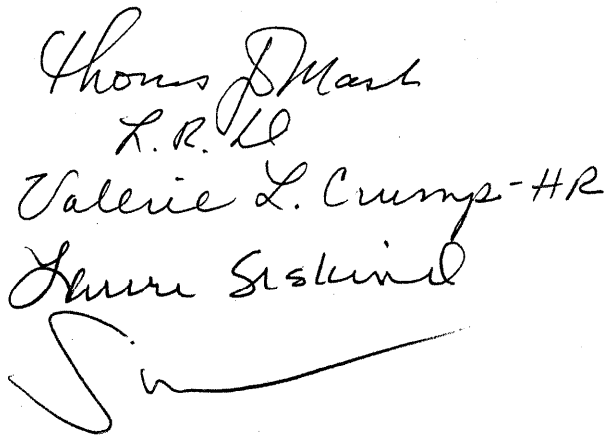 Thomas J Mash
L. R.
Valerie L. Crump-HR
Laurie Siskind